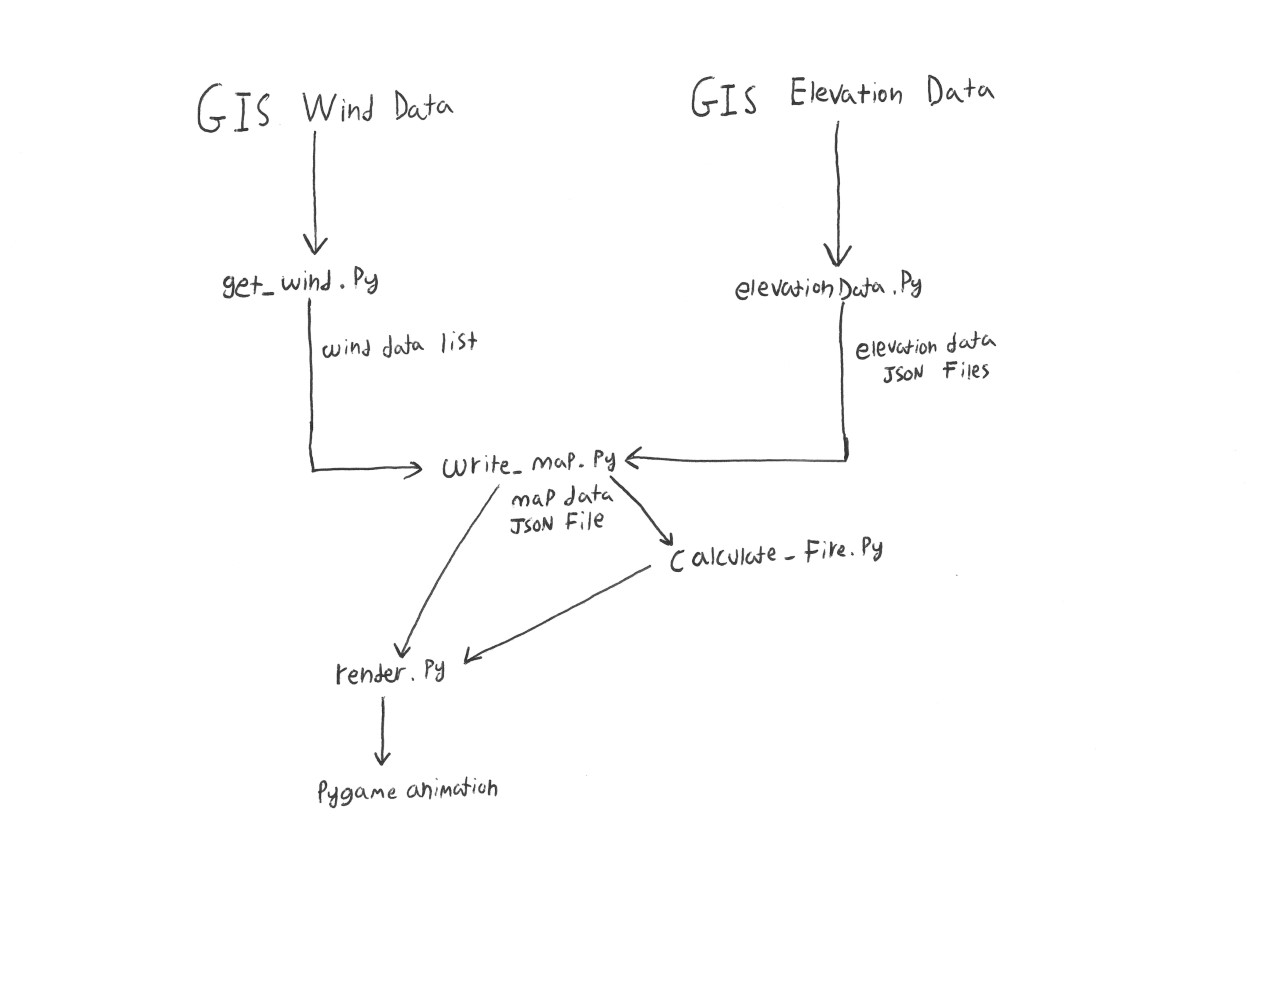 GIS Wind Data
GIS Elevation Data
get_wind.Py
elevationData.Py
wind data list
elevation data
JSON Files
write_map.Py
map data
JSON File
Calculate_Fire.Py
render.Py
Pygame animation